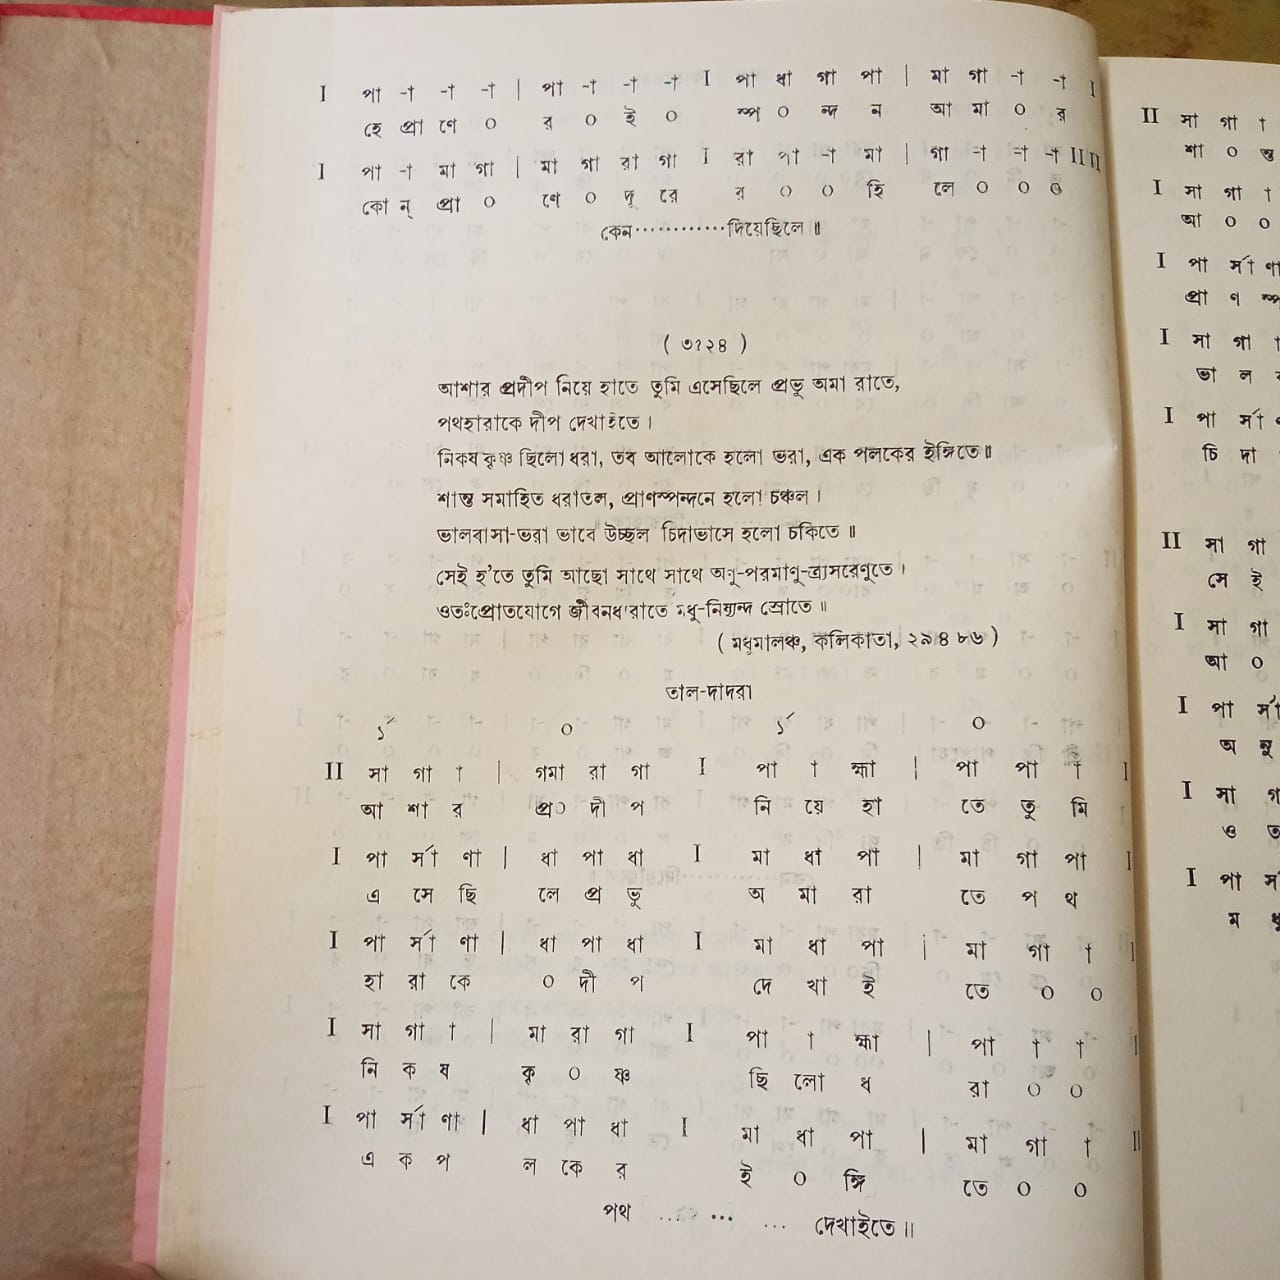 I পা -া -া -া | পা -া -া -া I পা ধা গা পা | মা গা -া -া I
হে প্রা ণে ০ র ০ ই ০ স্প ০ ন্দ ন আ মা ০ র
I পা -া মা গা | মা গা রা গা I রা পা -া মা | গা -া -া -া II II
কো ন্ প্রা ০ ণে ০ দূ রে র ০ ০ হি লে ০ ০ ০
কেন············দিয়েছিলে ॥
( ৩১২৪ )
আশার প্রদীপ নিয়ে হাতে তুমি এসেছিলে প্রভু অমা রাতে,
পথহারাকে দীপ দেখাইতে ।
নিকষ কৃষ্ণ ছিলো ধরা, তব আলোকে হলো ভরা, এক পলকের ইঙ্গিতে ॥
শান্ত সমাহিত ধরাতল, প্রাণস্পন্দনে হলো চঞ্চল ।
ভালবাসা-ভরা ভাবে উচ্ছল চিদাভাসে হলো চকিতে ॥
সেই হ'তে তুমি আছো সাথে সাথে অনু-পরমানু-ত্রাসরেনুতে ।
ওতঃপ্রোতযোগে জীবনধারাতে মধু-নিষ্যন্দ স্রোতে ॥
( মধুমালঞ্চ, কলিকাতা, ২৯৪৮৬ )
তাল-দাদরা
১´ ০ ১´ ০
II সা গা া | গমা রা গা I পা া হ্মা | পা পা া I
আ শা র প্র০ দী প নি য়ে হা তে তু মি
I পা র্সা ণা | ধা পা ধা I মা ধা পা | মা গা পা I
এ সে ছি লে প্র ভু অ মা রা তে প থ
I পা র্সা ণা | ধা পা ধা I মা ধা পা | মা গা া I
হা রা কে ০ দী প দে খা ই তে ০ ০
I সা গা া | মা রা গা I পা া হ্মা | পা া া I
নি ক ষ কৃ ০ ষ্ণ ছি লো ধ রা ০ ০
I পা র্সা ণা | ধা পা ধা I মা ধা পা | মা গা া II
এ ক প ল কে র ই ০ ঙ্গি তে ০ ০
পথ ... ... ... দেখাইতে ॥
II সা গা া
শা ০ ন্ত
I সা গা া
আ ০ ০
I পা র্সা ণা
প্রা ণ স্প
I সা গা া
ভা ল
I পা র্সা
চি দা
II সা গা
সে ই
I সা গা
আ ০
I পা র্সা
অ নু
I সা
ও ত
I পা
ম